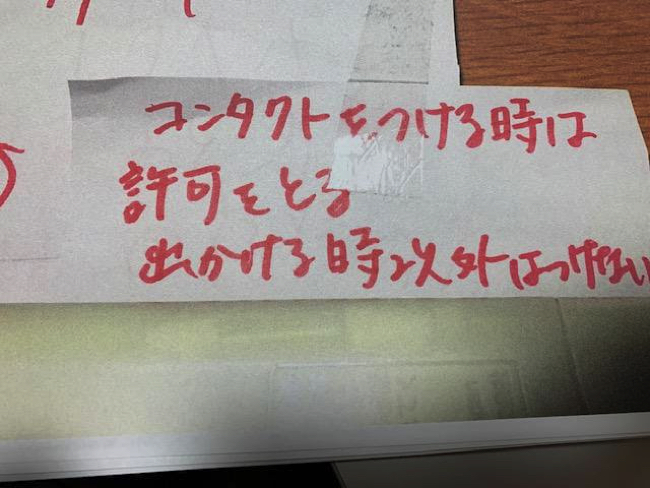 コンタクトをつける時は
許可をとる
出かける時以外はつけない